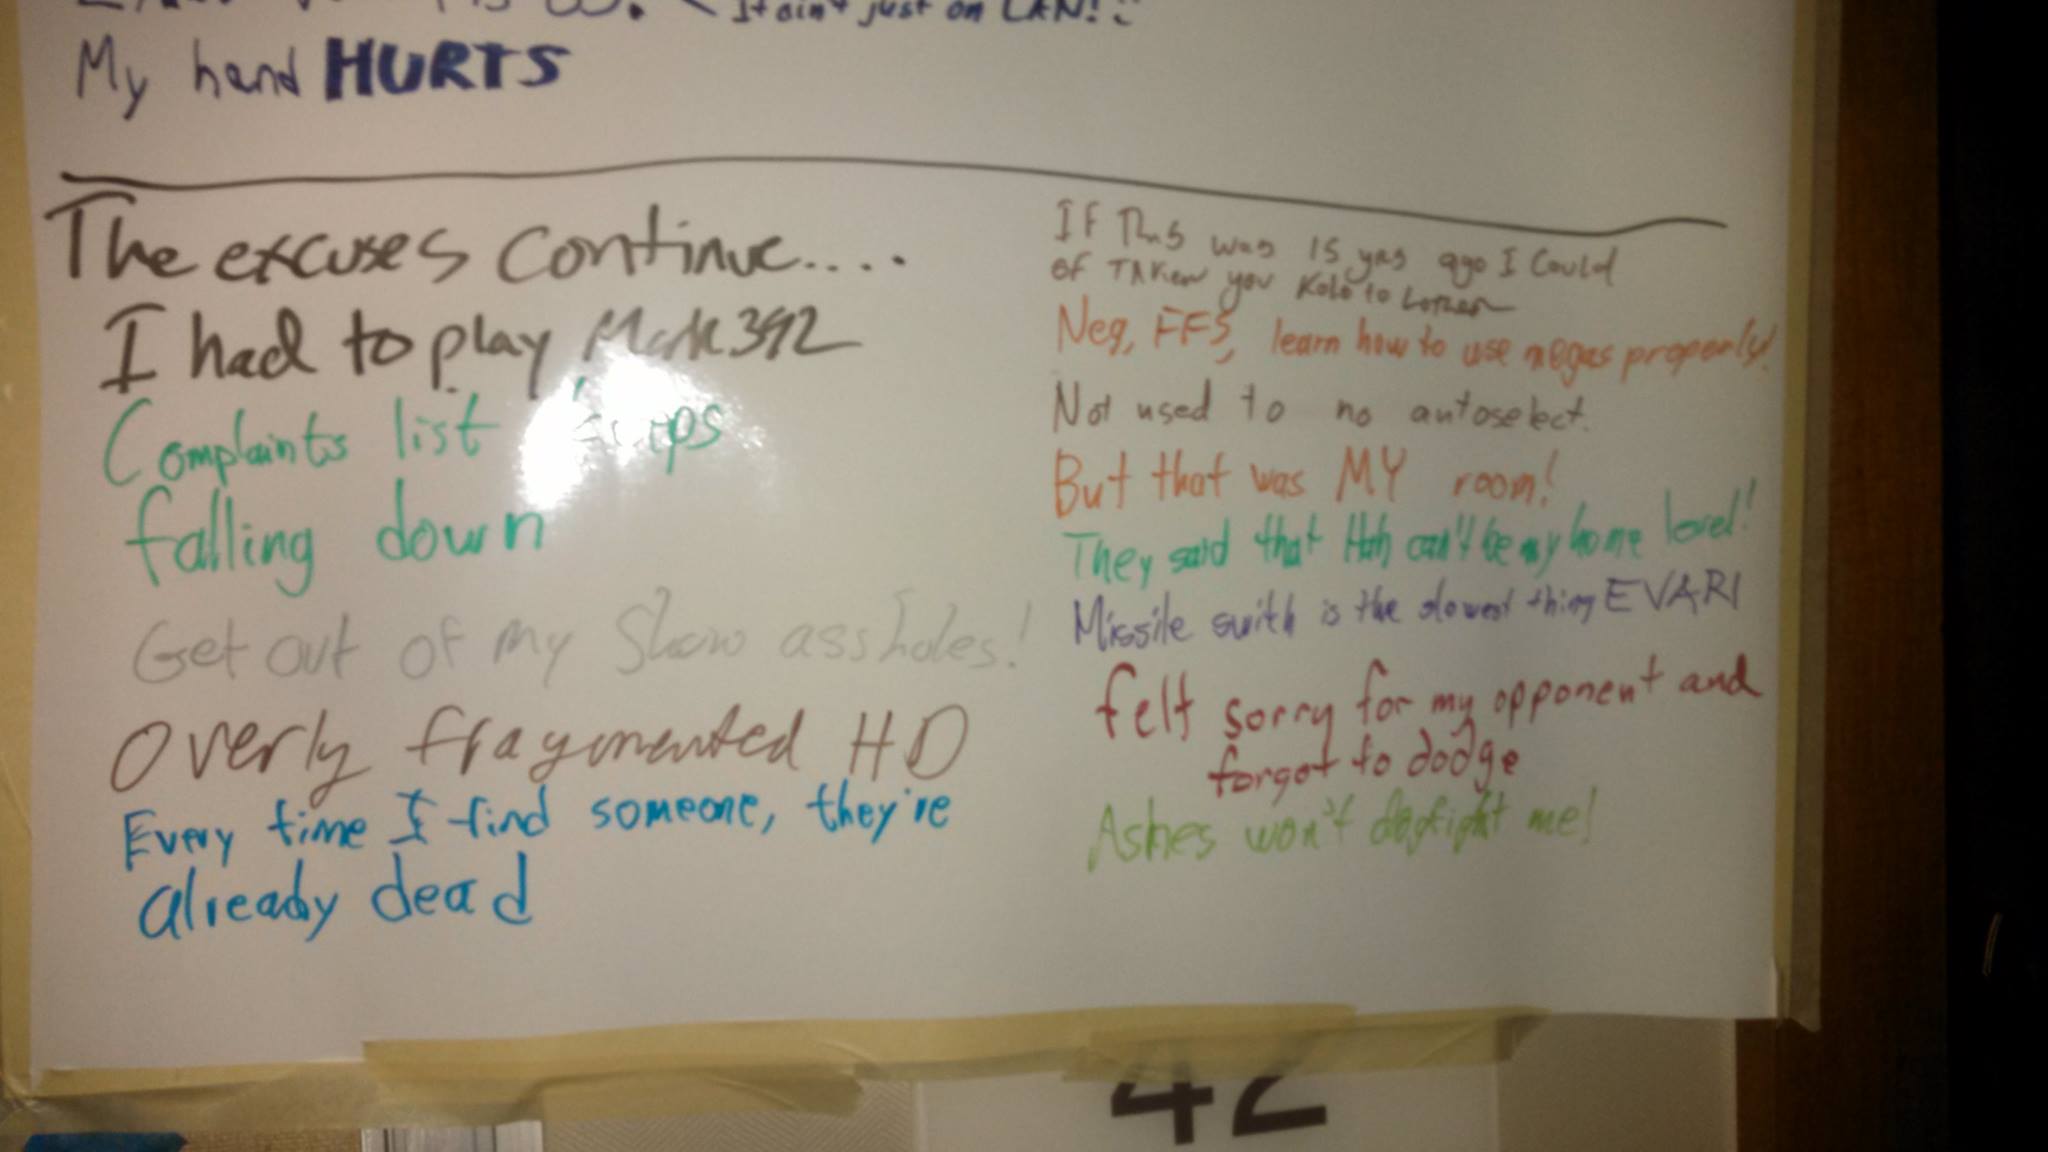 It ain't just on LAN! :)
My hand HURTS
The excuses continue....
I had to play Mark392
Complaints list
falling down
Get out of my Show assholes!
Overly fragmented HD
Every time I find someone, they're
already dead
If This was 15 yrs ago I Could
of TAKen you Kolo to
Neg, FFS, learn how to use megas properly!
Not used to no autoselect.
But that was MY room!
They said that Hoth can't be my home level!
Missile swith is the slowest thing EVAR!
felt sorry for my opponent and
forgot to dodge
Ashes won't dogfight me!
42